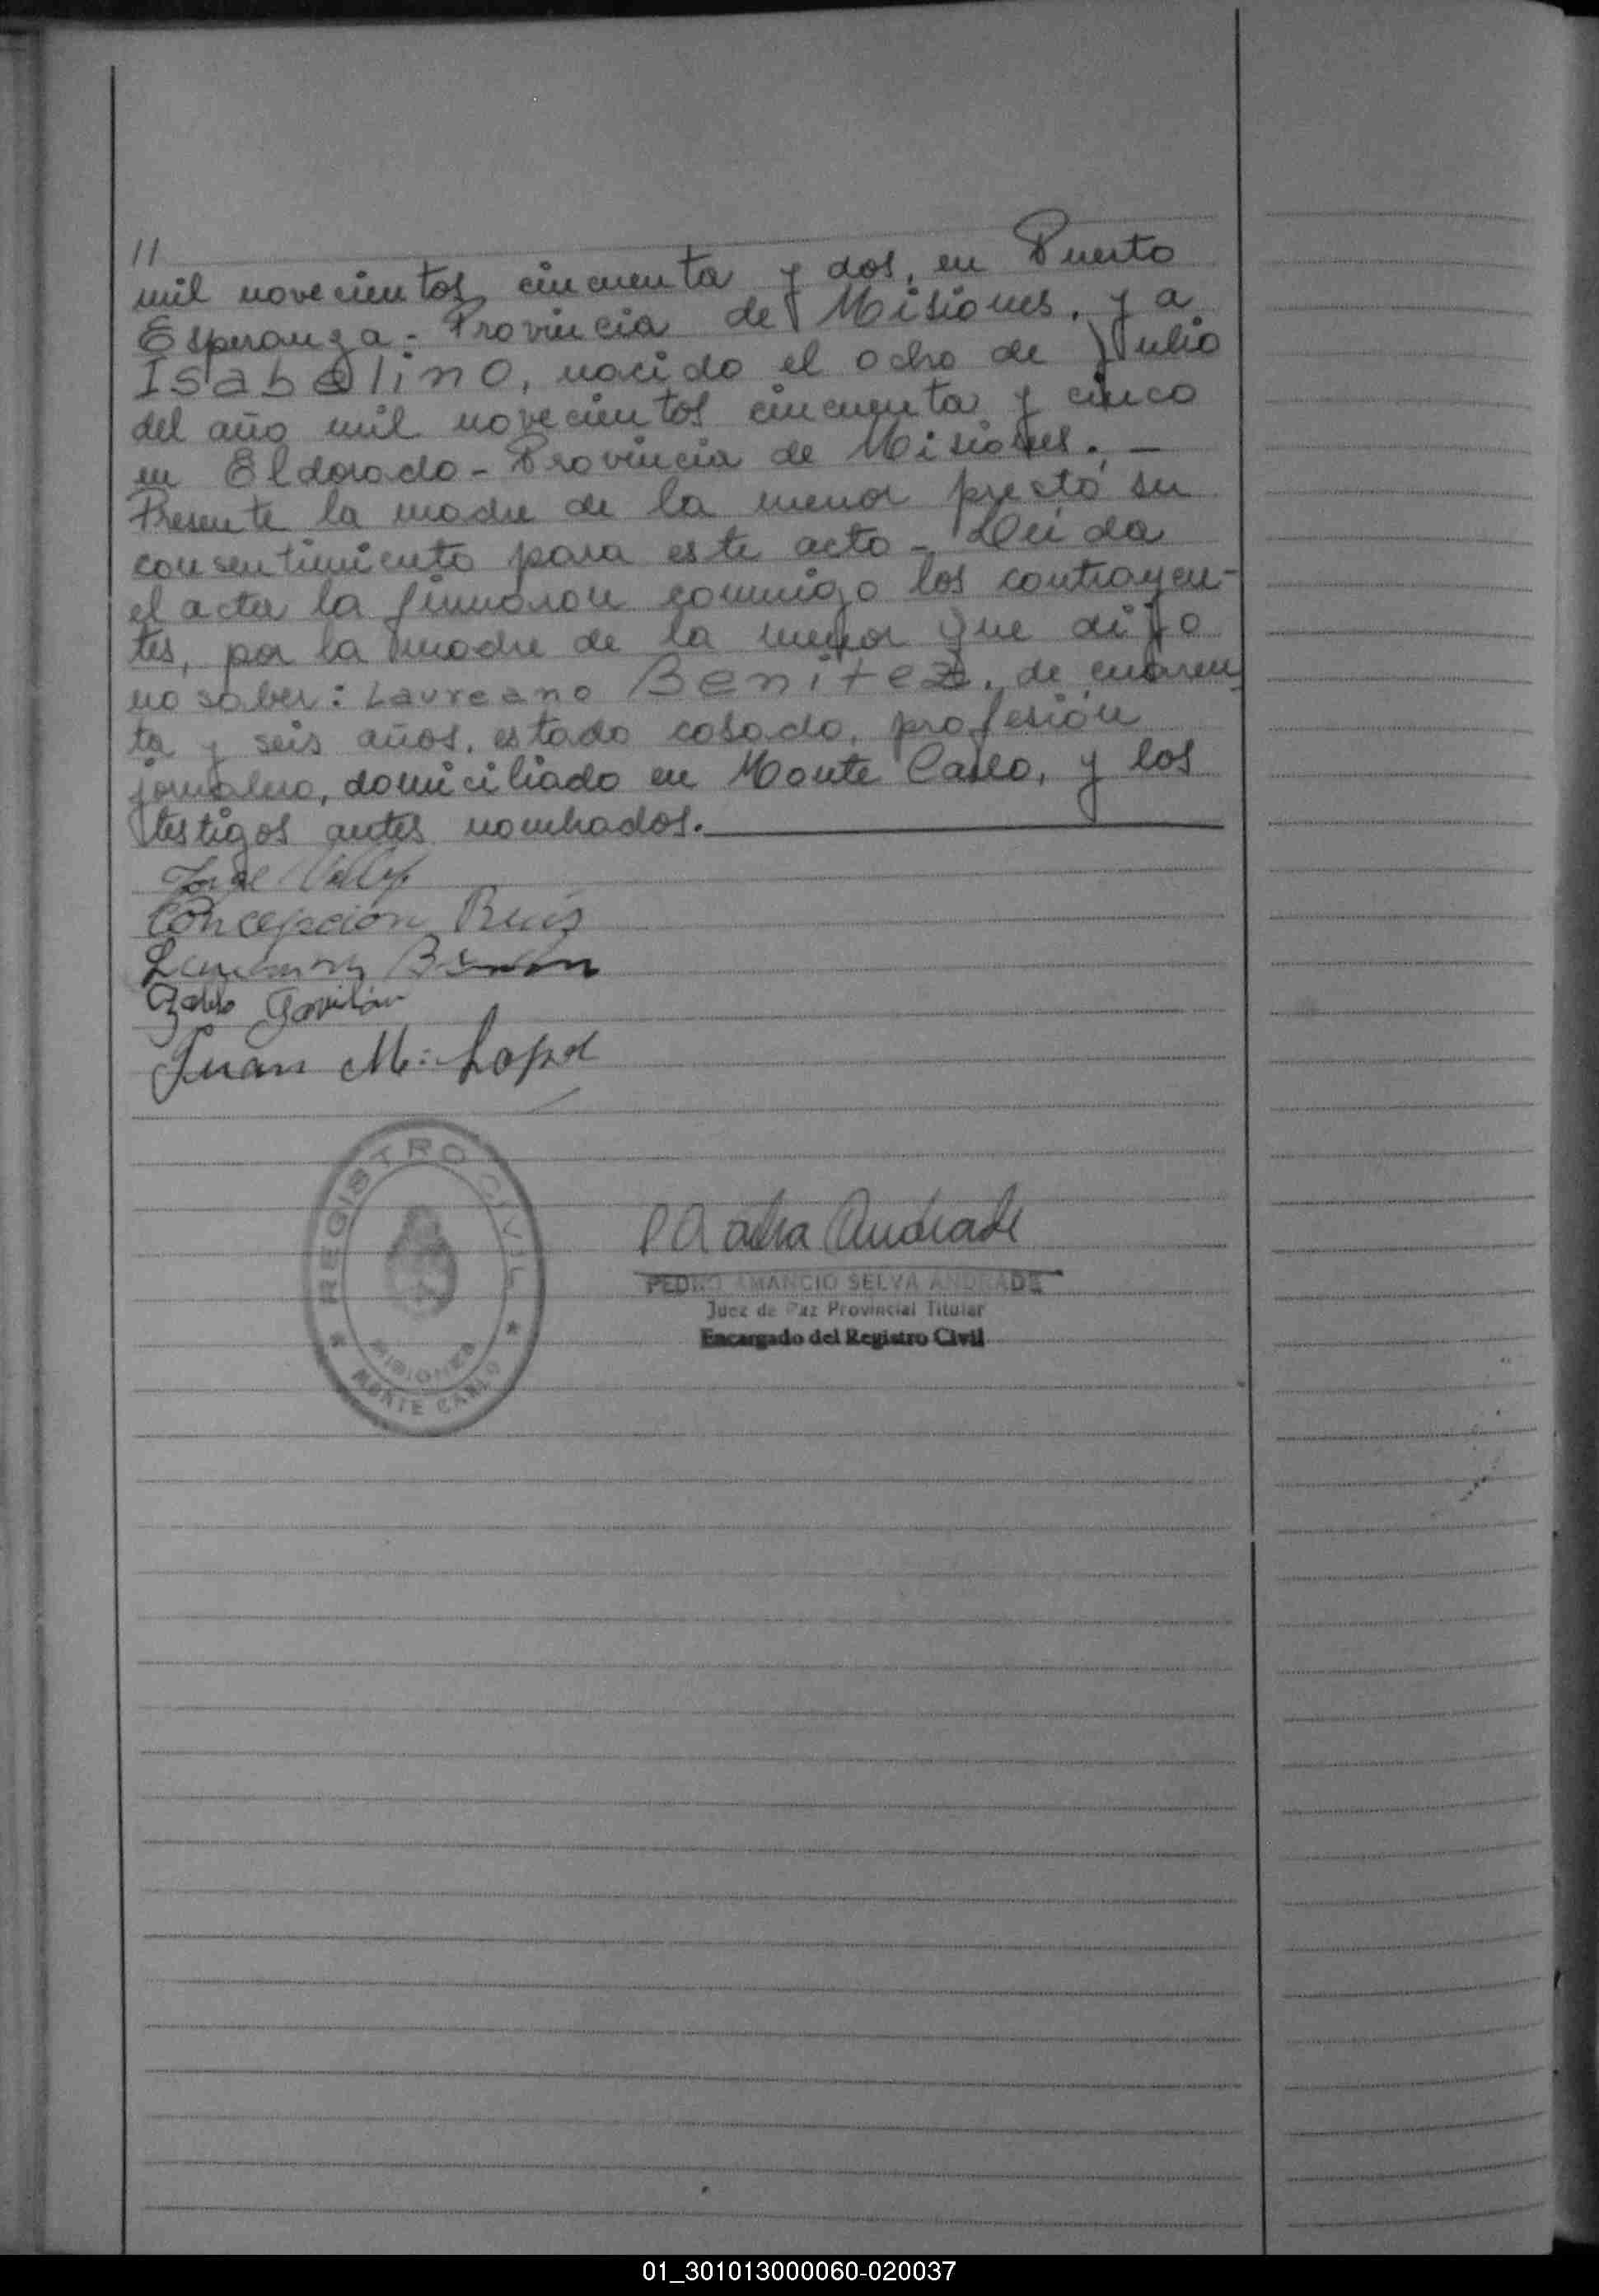 11
mil novecientos cincuenta y dos, en Puerto
Esperanza - Provincia de Misiones, y a
Isabelino, nacido el ocho de Julio
del año mil novecientos cincuenta y cinco
en Eldorado - Provincia de Misiones. -
Presente la madre de la menor prestó su
consentimiento para este acto - Leída
el acta la firmaron conmigo los contrayen-
tes, por la madre de la menor que dijo
no saber: Laureano Benitez, de cuaren-
ta y seis años, estado casado, profesión
jornalero, domiciliado en Monte Carlo, y los
testigos antes nombrados.
Jorge
Concepción Ruiz
Pablo Gavilán
Juan M. Lopez
REGISTRO CIVIL
MISIONES
MONTE CARLO
Andrade
PEDRO AMANCIO SELVA ANDRADE
Juez de Paz Provincial Titular
Encargado del Registro Civil
01_301013000060-020037